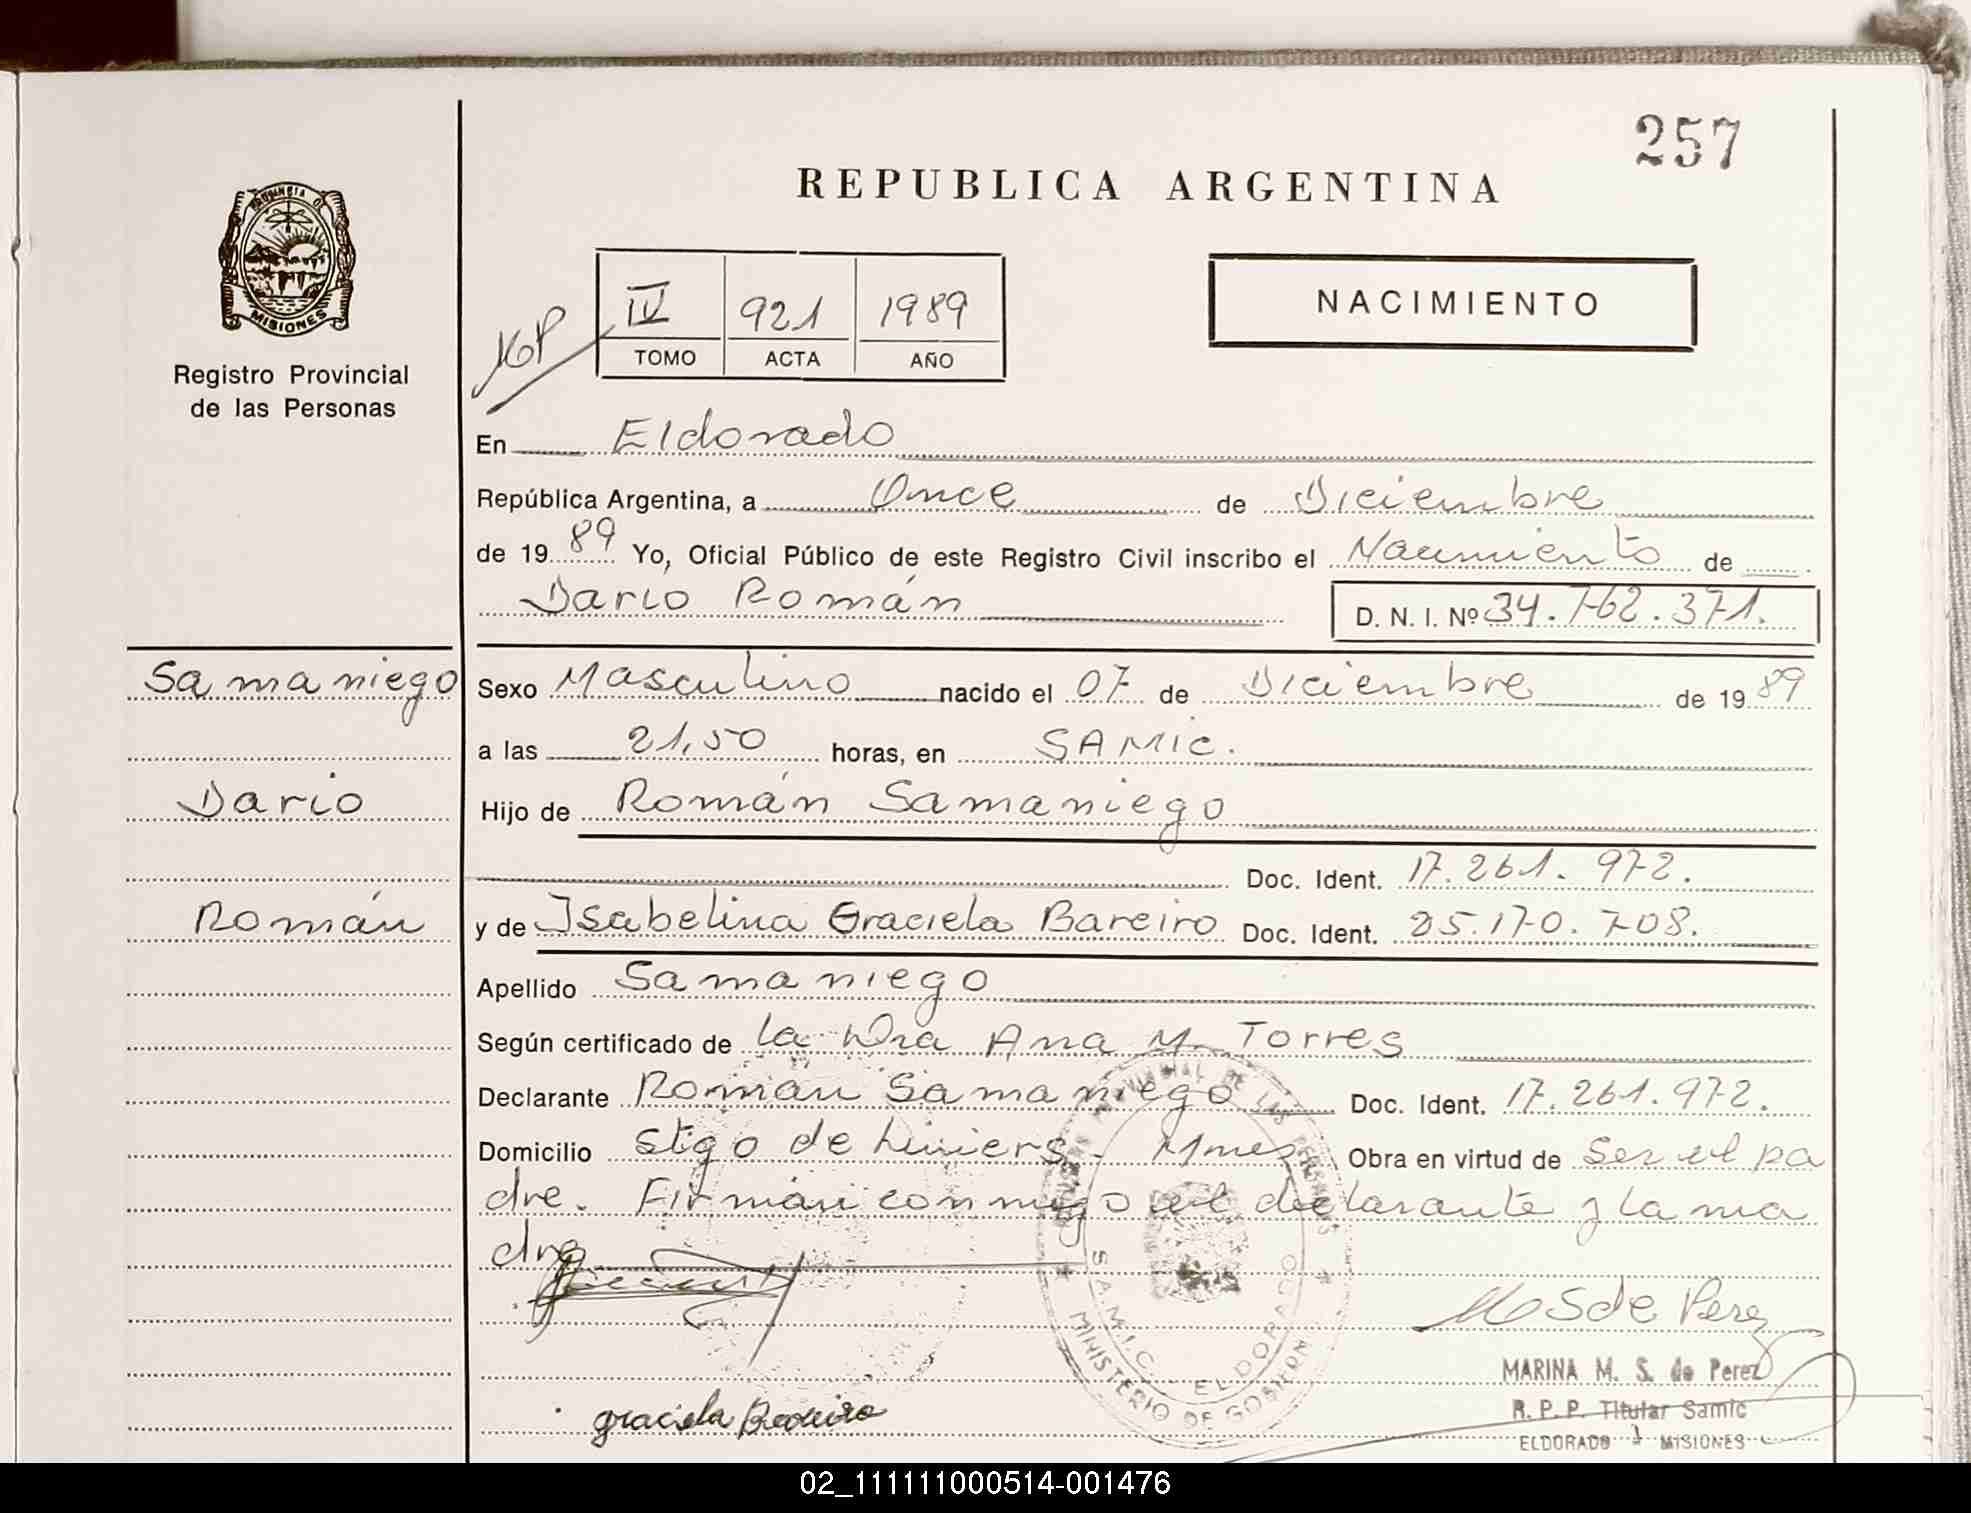 257
REPUBLICA ARGENTINA
PROVINCIA D
MISIONES
Registro Provincial
de las Personas
IV 921 1989
TOMO ACTA AÑO
NACIMIENTO
En Eldorado
República Argentina, a Once de Diciembre
de 1989 Yo, Oficial Público de este Registro Civil inscribo el Nacimiento de
Dario Román D. N. I. Nº 34.762.371.
Samaniego
Dario
Román
Sexo Masculino nacido el 07 de Diciembre de 1989
a las 21,50 horas, en SAMIC.
Hijo de Román Samaniego
Doc. Ident. 17.261.972.
y de Isabelina Graciela Bareiro Doc. Ident. 25.170.708.
Apellido Samaniego
Según certificado de la Dra Ana M. Torres
Declarante Román Samaniego Doc. Ident. 17.261.972.
Domicilio Stgo de Liniers - Mnes Obra en virtud de Ser el pa
dre. Firman conmigo el declarante y la ma
dre
S.A.M.I.C. ELDORADO
MINISTERIO DE GOBIERN
MSde Perez
MARINA M. S. de Perez
R. P. P. Titular Samic
ELDORADO - MISIONES
graciela Bareiro
02_111111000514-001476